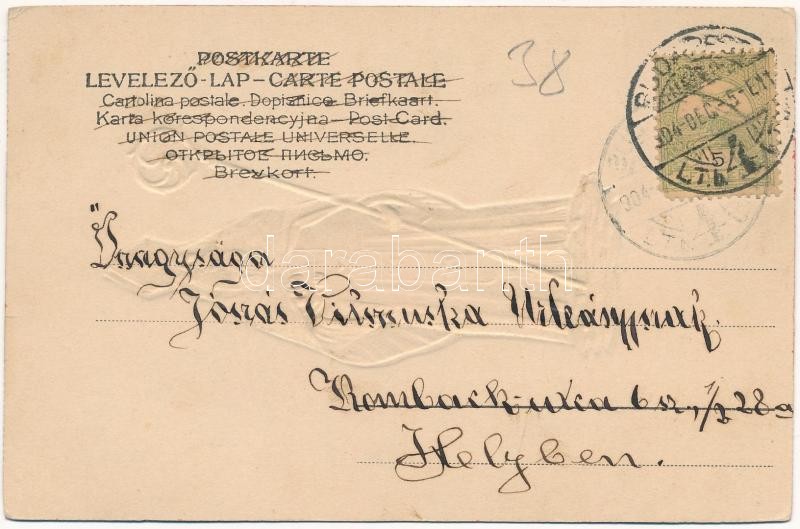 POSTKARTE
LEVELEZŐ-LAP-CARTE POSTALE
Cartolina postale. Dopisnice. Briefkaart.
Karta korespondencyjna-Post-Card.
UNION POSTALE UNIVERSELLE.
ОТКРЫТОЕ ПИСЬМО.
Brevkort.
38
904-DEC-5-
Őnagysága
Jónás Piroska Urleánynak
Rombach-utca 6 sz., 1/2 28a
Helyben.
darabanth